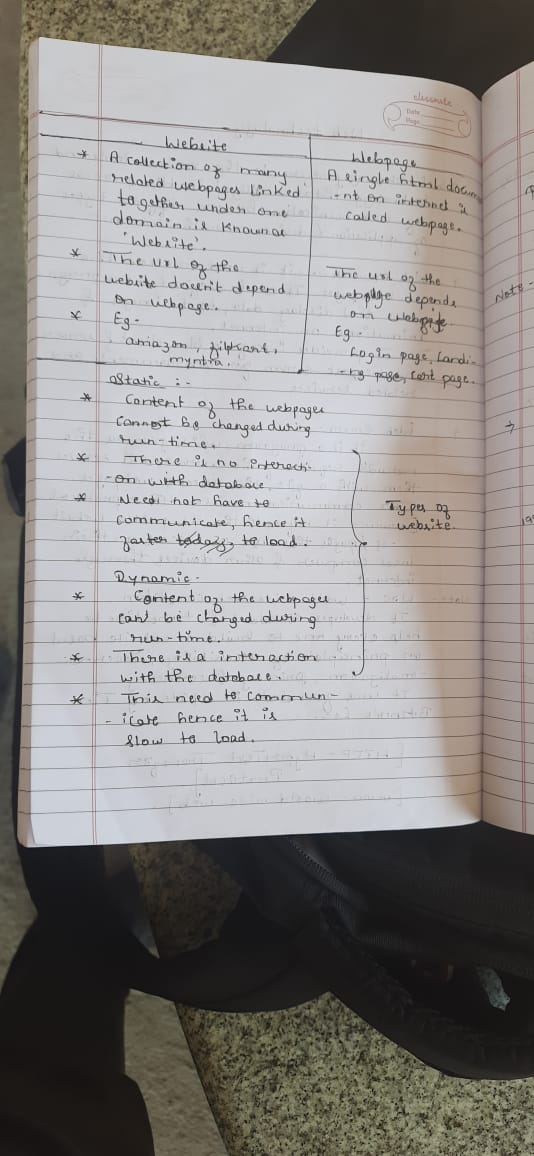 classmate
Date
Page
Website
* A collection of many
related webpages linked
together under one
domain is known as
'Website'.
* The url of the
website doesn't depend
on webpage.
* Eg-
amazon, flipkart,
myntra.
Webpage
A single html docum
-ent on internet is
called webpage.
The url of the
webpage depends
on webpage.
Eg.
Login page, Landi-
-ng page, cart page.
Static :-
* Content of the webpages
cannot be changed during
run-time.
* There is no interacti-
-on with database.
* Need not have to
communicate, hence it
faster today, to load.
Types of
website.
Dynamic-
* Content of the webpages
can't be changed during
run-time.
* There is a interaction
with the database.
* This need to commun-
-icate hence it is
slow to load.
Note-